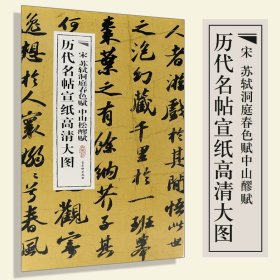 宋 苏轼洞庭春色赋中山醪赋
历代名帖宣纸高清大图
宋 苏轼洞庭春色赋 中山松醪赋
历代名帖宣纸高清大图
幻藏千里於一班舉
棗葉之有餘納芥子其
觀寄
逸想於人寰嫋嫋兮春風